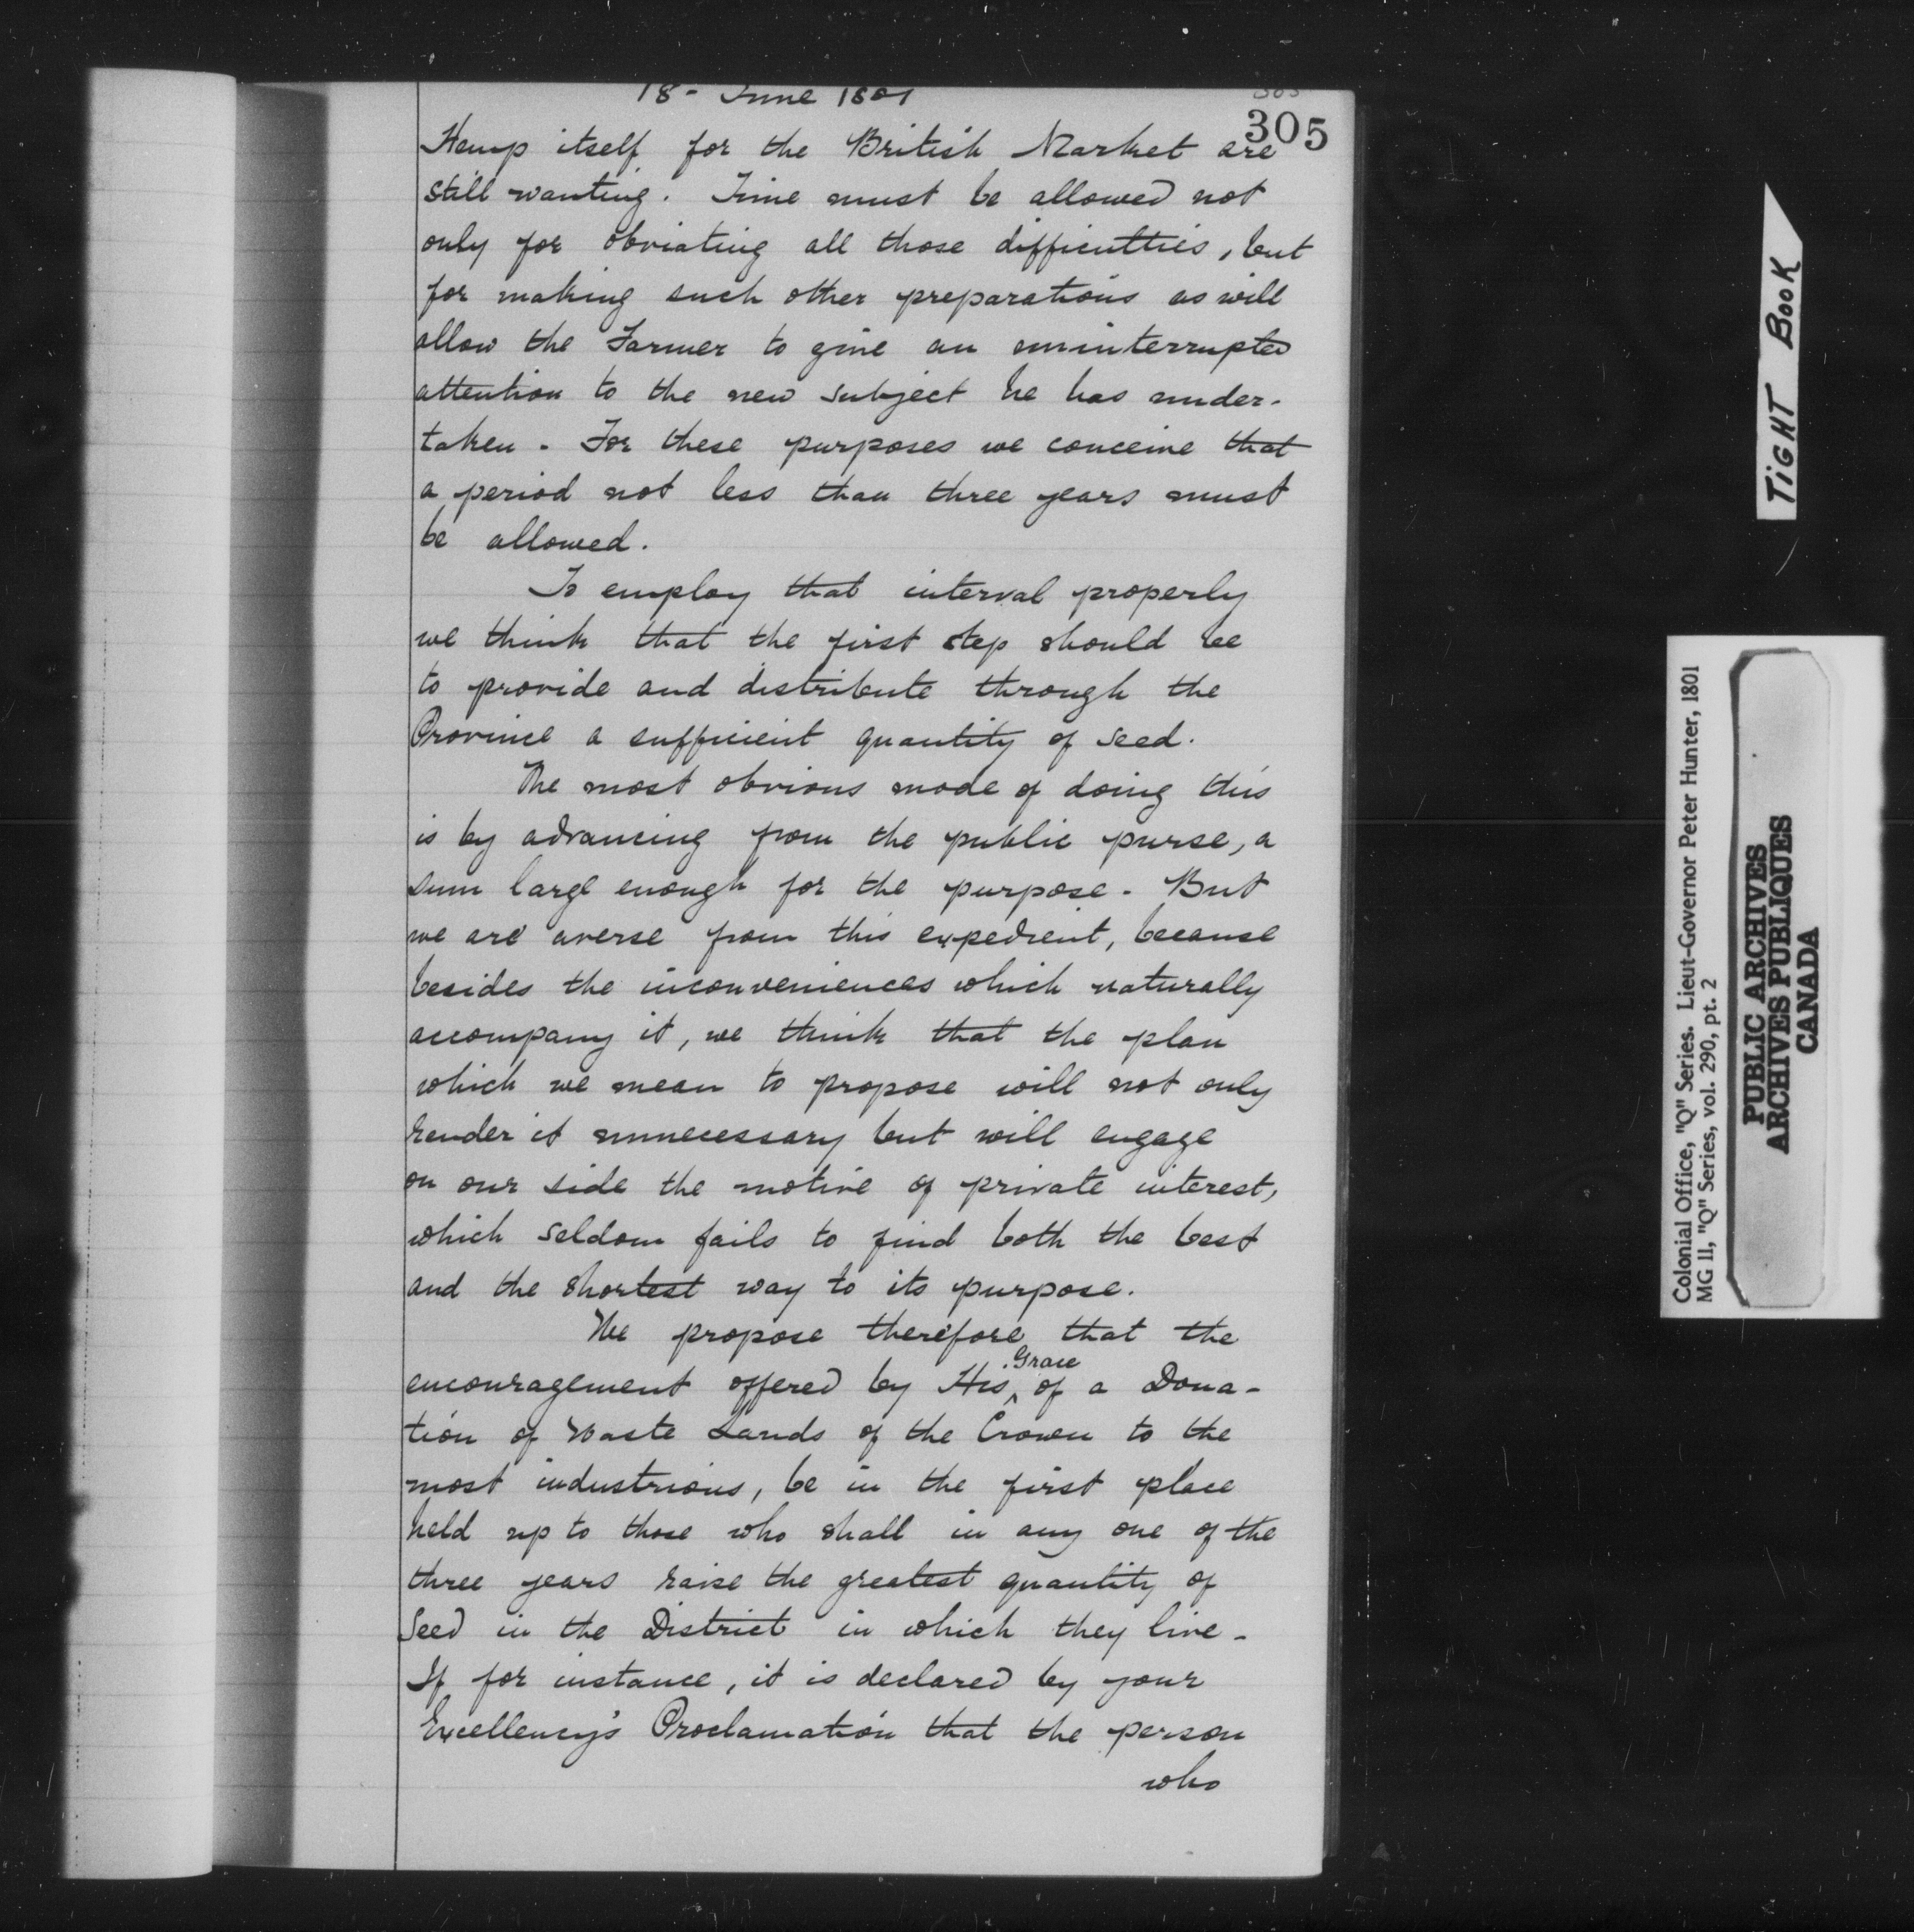 18- June 1801
305
Hemp itself for the British Market are
still wanting. Time must be allowed not
only for obviating all those difficulties, but
for making such other preparations as will
allow the Farmer to give an uninterrupted
attention to the new subject he has under-
taken - For these purposes we conceive that
a period not less than three years must
be allowed.
To employ that interval properly
we think that the first step should be
to provide and distribute through the
Province a sufficient quantity of seed.
The most obvious mode of doing this
is by advancing from the public purse, a
sum large enough for the purpose - But
we are averse from this expedient, because
besides the inconveniences which naturally
accompany it, we think that the plan
which we mean to propose will not only
render it unnecessary but will engage
on our side the motive of private interest,
which seldom fails to find both the best
and the shortest way to its purpose.
We propose therefore that the
encouragement offered by His ^Grace of a Dona-
tion of Waste Lands of the Crown to the
most industrious, be in the first place
held up to those who shall in any one of the
three years raise the greatest quantity of
Seed in the District in which they live -
If for instance, it is declared by your
Excellency's Proclamation that the person
who
TIGHT BOOK
Colonial Office, "Q" Series. Lieut-Governor Peter Hunter, 1801
MG 11, "Q" Series, vol. 290, pt. 2
PUBLIC ARCHIVES
ARCHIVES PUBLIQUES
CANADA